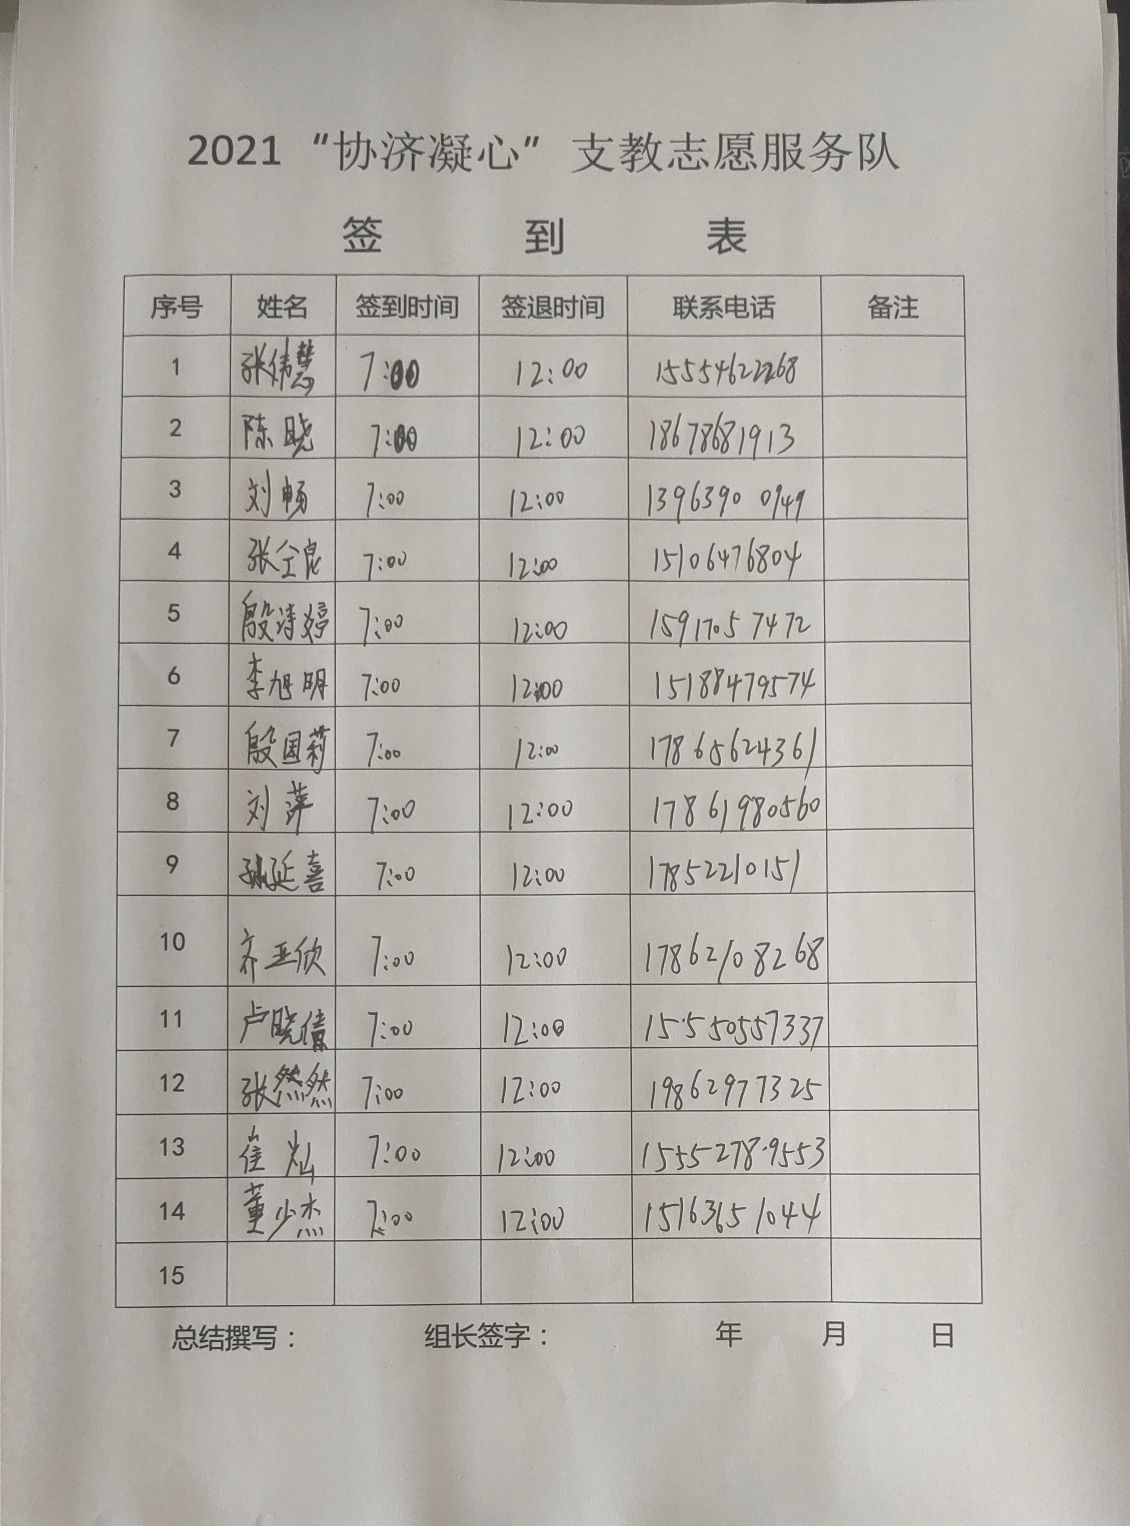 2021 “协济凝心”支教志愿服务队
签 到 表
序号 姓名 签到时间 签退时间 联系电话 备注
1 张伟慧 7:00 12:00 15554622268
2 陈晓 7:00 12:00 18678681913
3 刘畅 7:00 12:00 13963900949
4 张全良 7:00 12:00 15106476804
5 殷诗婷 7:00 12:00 15917057472
6 李旭明 7:00 12:00 15188479574
7 殷国莉 7:00 12:00 17865624361
8 刘萍 7:00 12:00 17861980560
9 孙延喜 7:00 12:00 17852210151
10 齐亚欣 7:00 12:00 17862108268
11 卢晓僖 7:00 12:00 15550557337
12 张然然 7:00 12:00 19862977325
13 崔灿 7:00 12:00 15552789553
14 董少杰 7:00 12:00 15163651044
15
总结撰写： 组长签字： 年 月 日